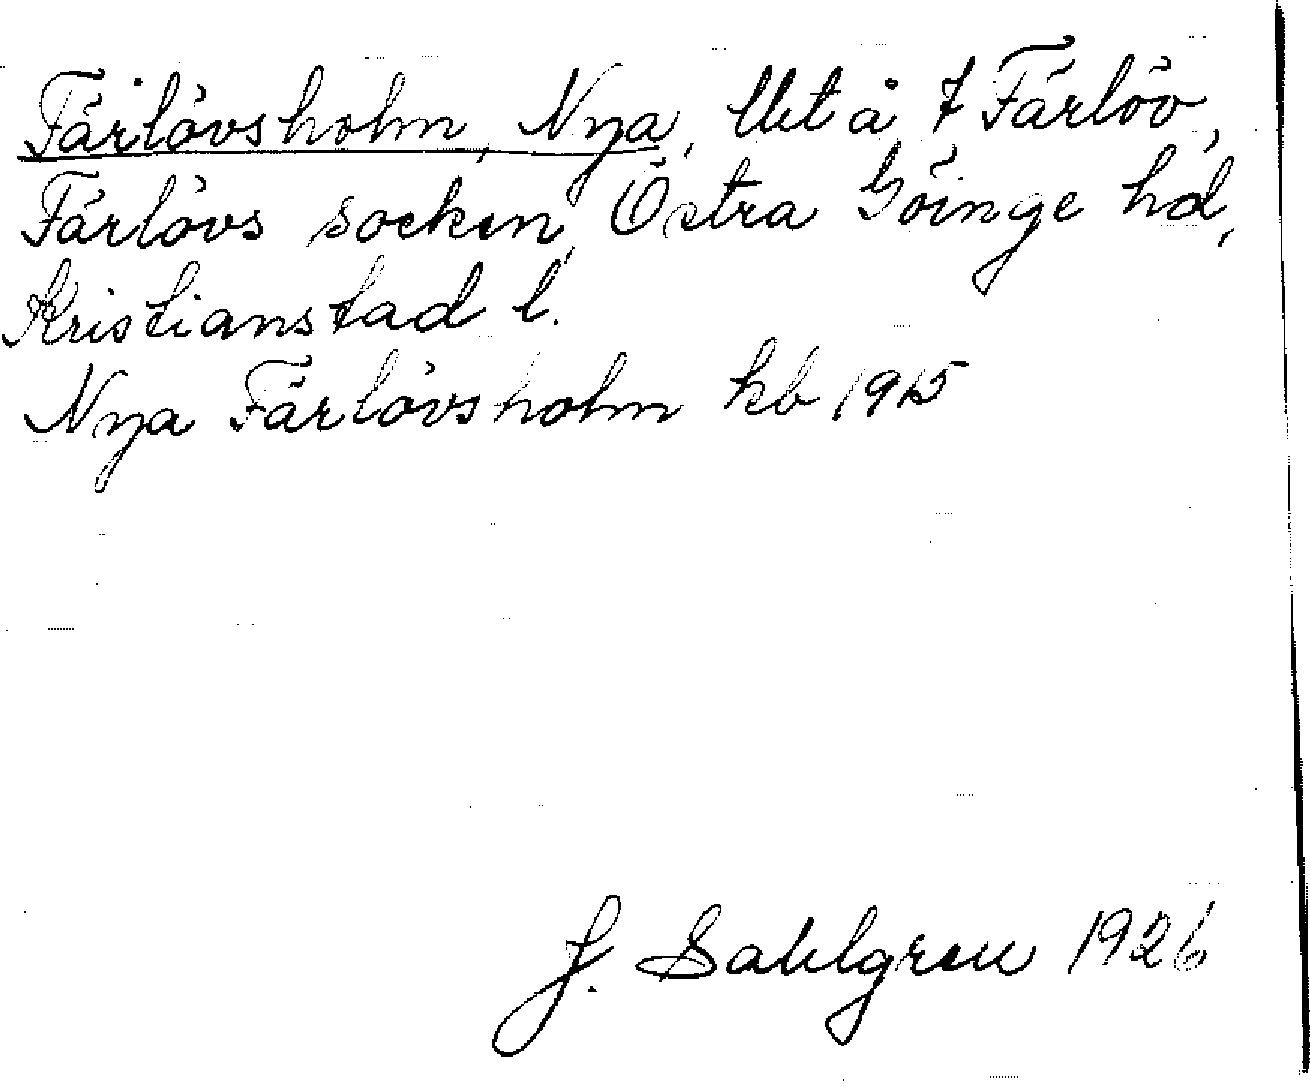 Färlövsholm, Nya, lht å 7 Färlöv,
Färlövs socken, Östra Göinge hd,
Kristianstad l.
Nya Färlövsholm kb 1915
J. Sahlgren 1926